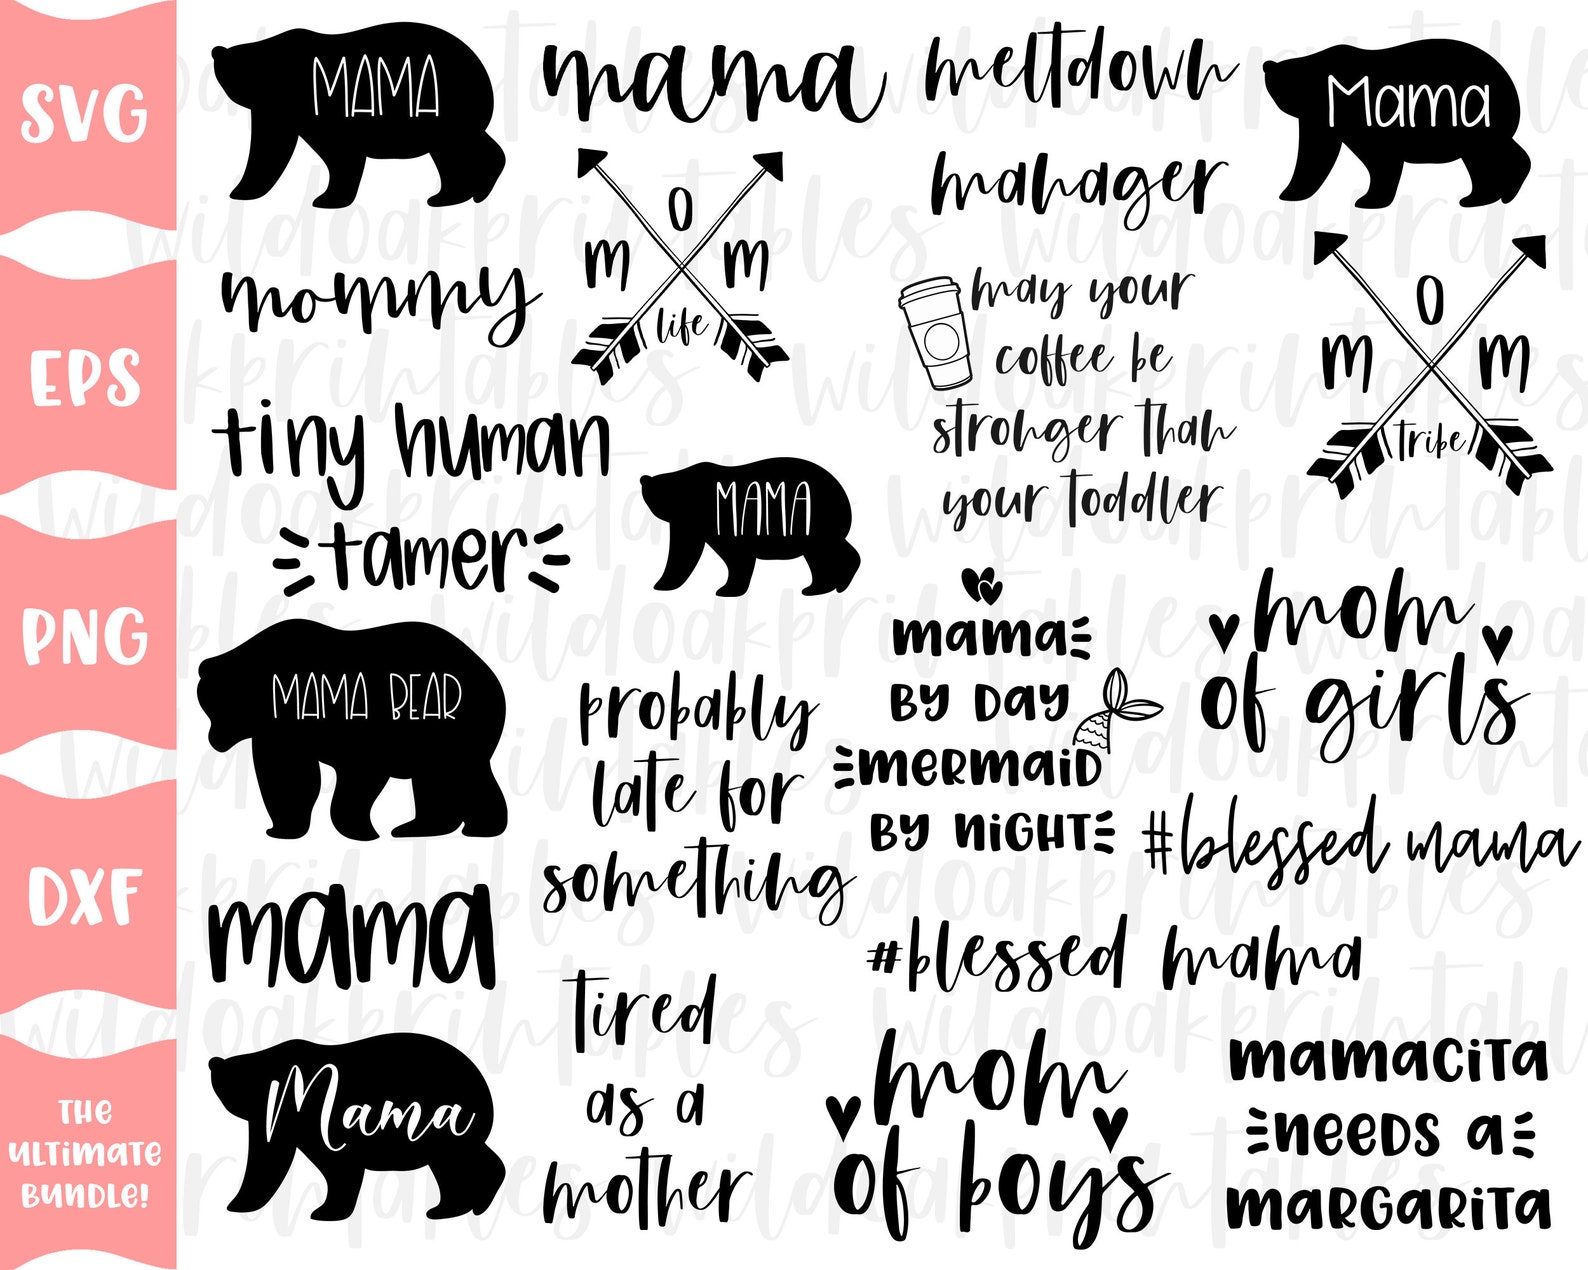 SVG
EPS
PNG
DXF
THE
ULTIMATE
BUNDLE!
MAMA
mama
meltdown
manager
Mama
mommy
O
M M
life
may your
coffee be
stronger than
your toddler
O
M M
tribe
tiny human
tamer
MAMA
MAMA BEAR
probably
late for
something
mama
BY DAY
mermaid
BY NIGHT
mom
of girls
#blessed mama
#blessed mama
mama
Mama
tired
as a
mother
mom
of boys
mamacita
needs a
margarita
wildoakprintables